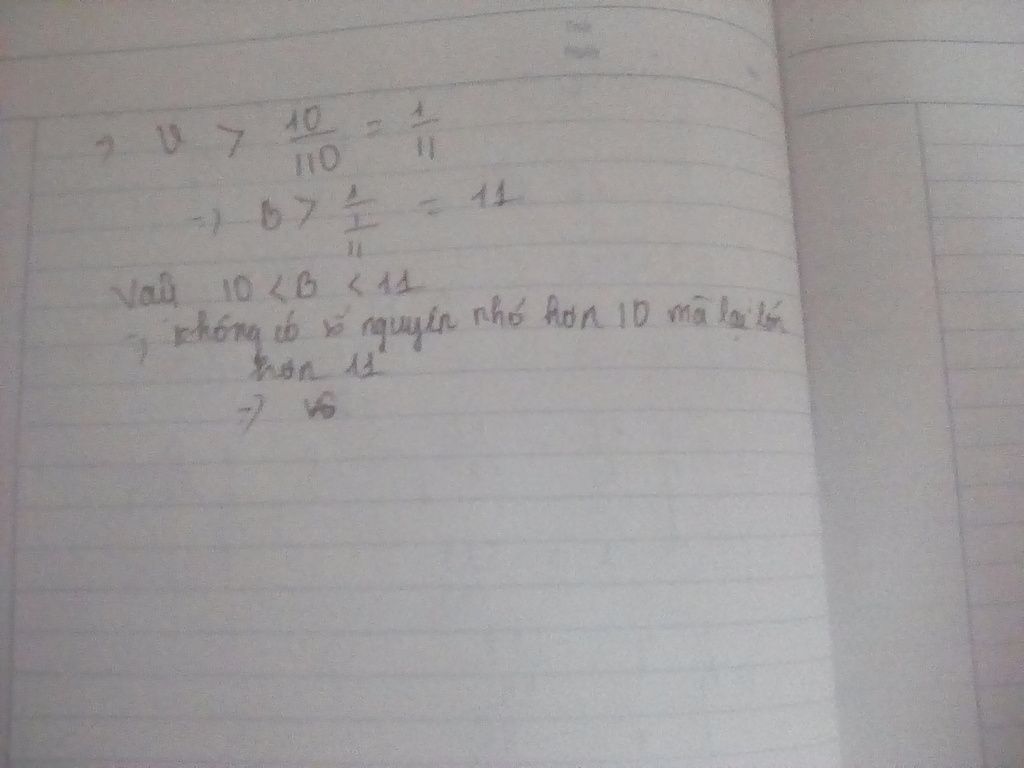 => U > 10/110 = 1/11
=> B > 1/(1/11) = 11
Vậy 10 < B < 11
=> không có số nguyên nhỏ hơn 10 mà lại lớn
hơn 11
=> vô